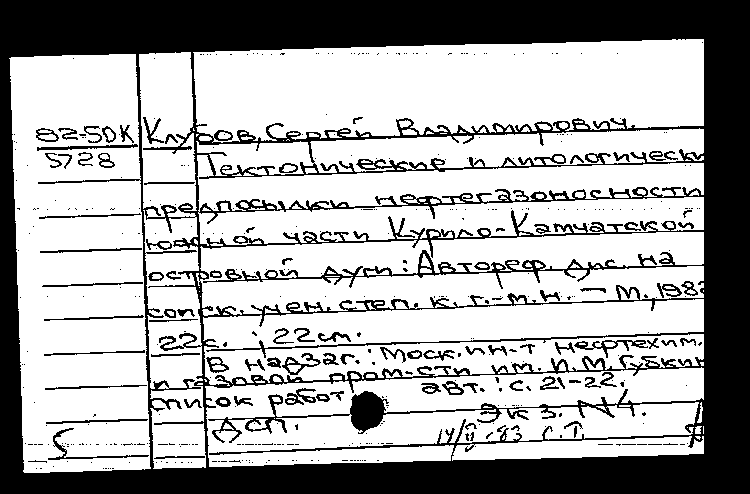 82-5DK Клубов, Сергей Владимирович.
5728 Тектонические и литологически
предпосылки нефтегазоносности
южной части Курило-Камчатской
островной дуги : Автореф. дис. на
соиск. учен. степ. к. г.-м. н. — М., 1982
22 с. ; 22 см.
В надзаг.: Моск. ин-т нефтехим.
и газовой пром-сти им. И. М. Губкин
список работ авт. : с. 21-22.
ДСП. Экз. N4.
5 14/II-83 С.Т.